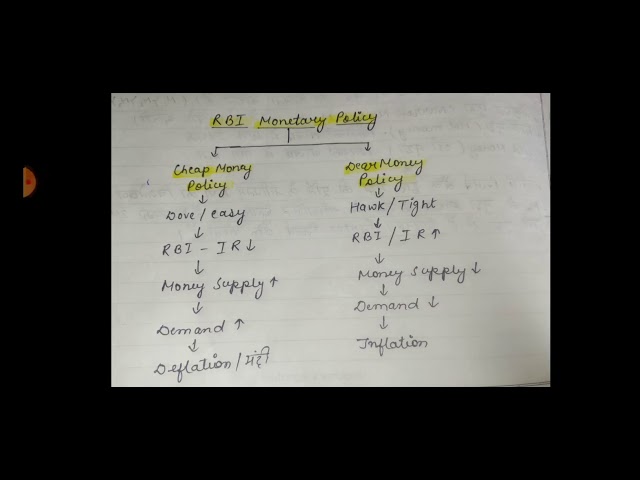 RBI Monetary Policy
Cheap Money
Policy
↓
Dove / easy
↓
RBI - IR ↓
↓
Money Supply ↑
↓
Demand ↑
↓
Deflation / मंदी
Dear Money
Policy
↓
Hawk / Tight
↓
RBI / IR ↑
↓
Money Supply ↓
↓
Demand ↓
↓
Inflation